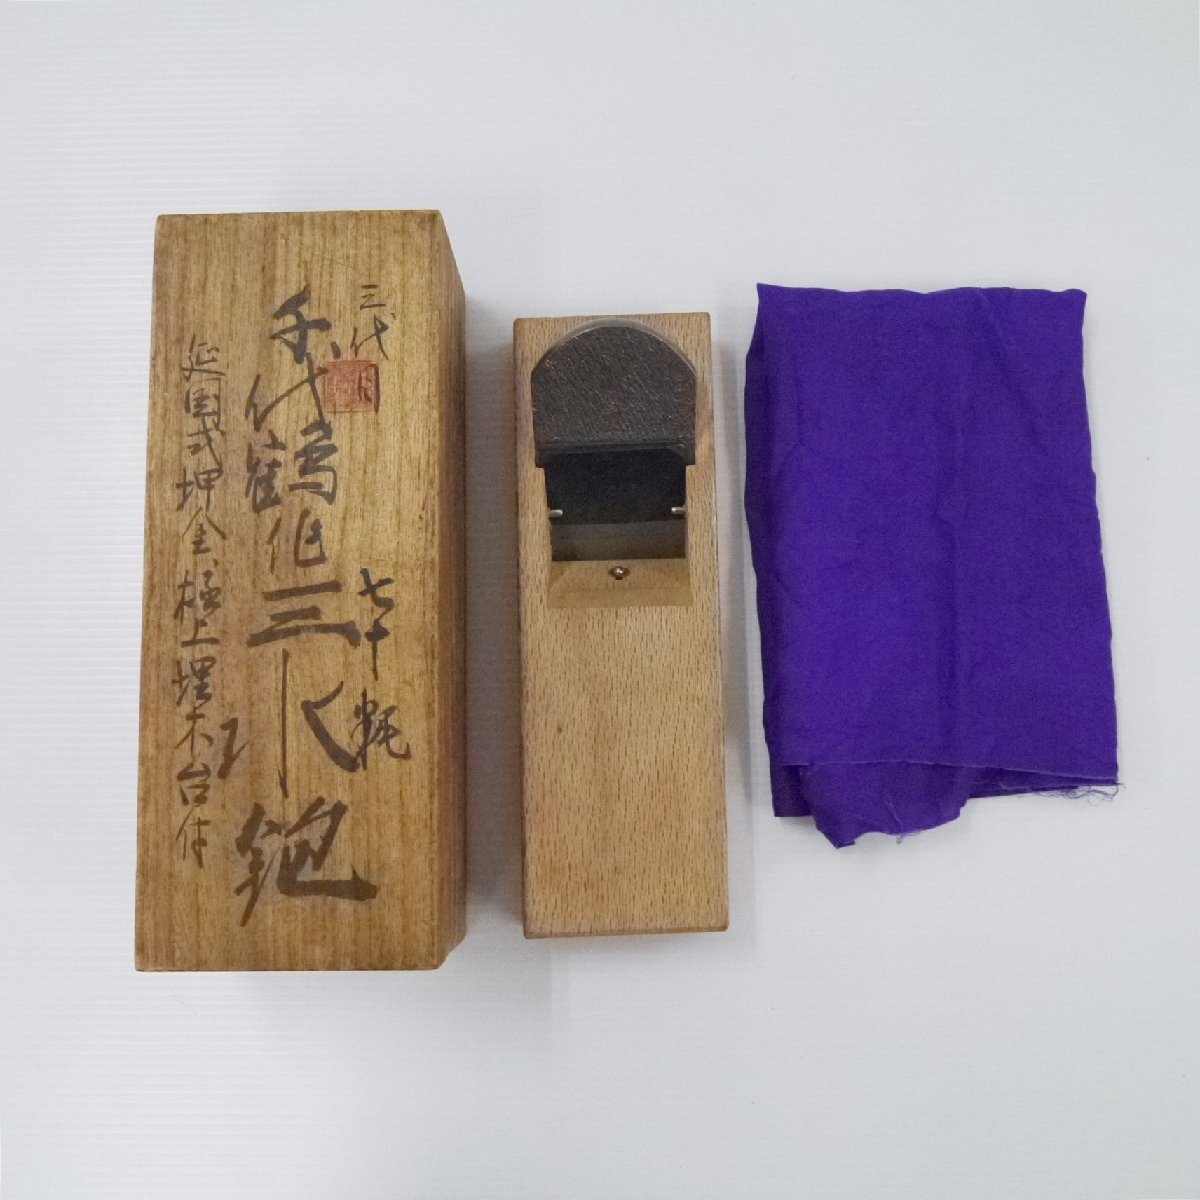 三代
七十粍
千代鶴作三水鉋
延国式押金、極上埋木台付